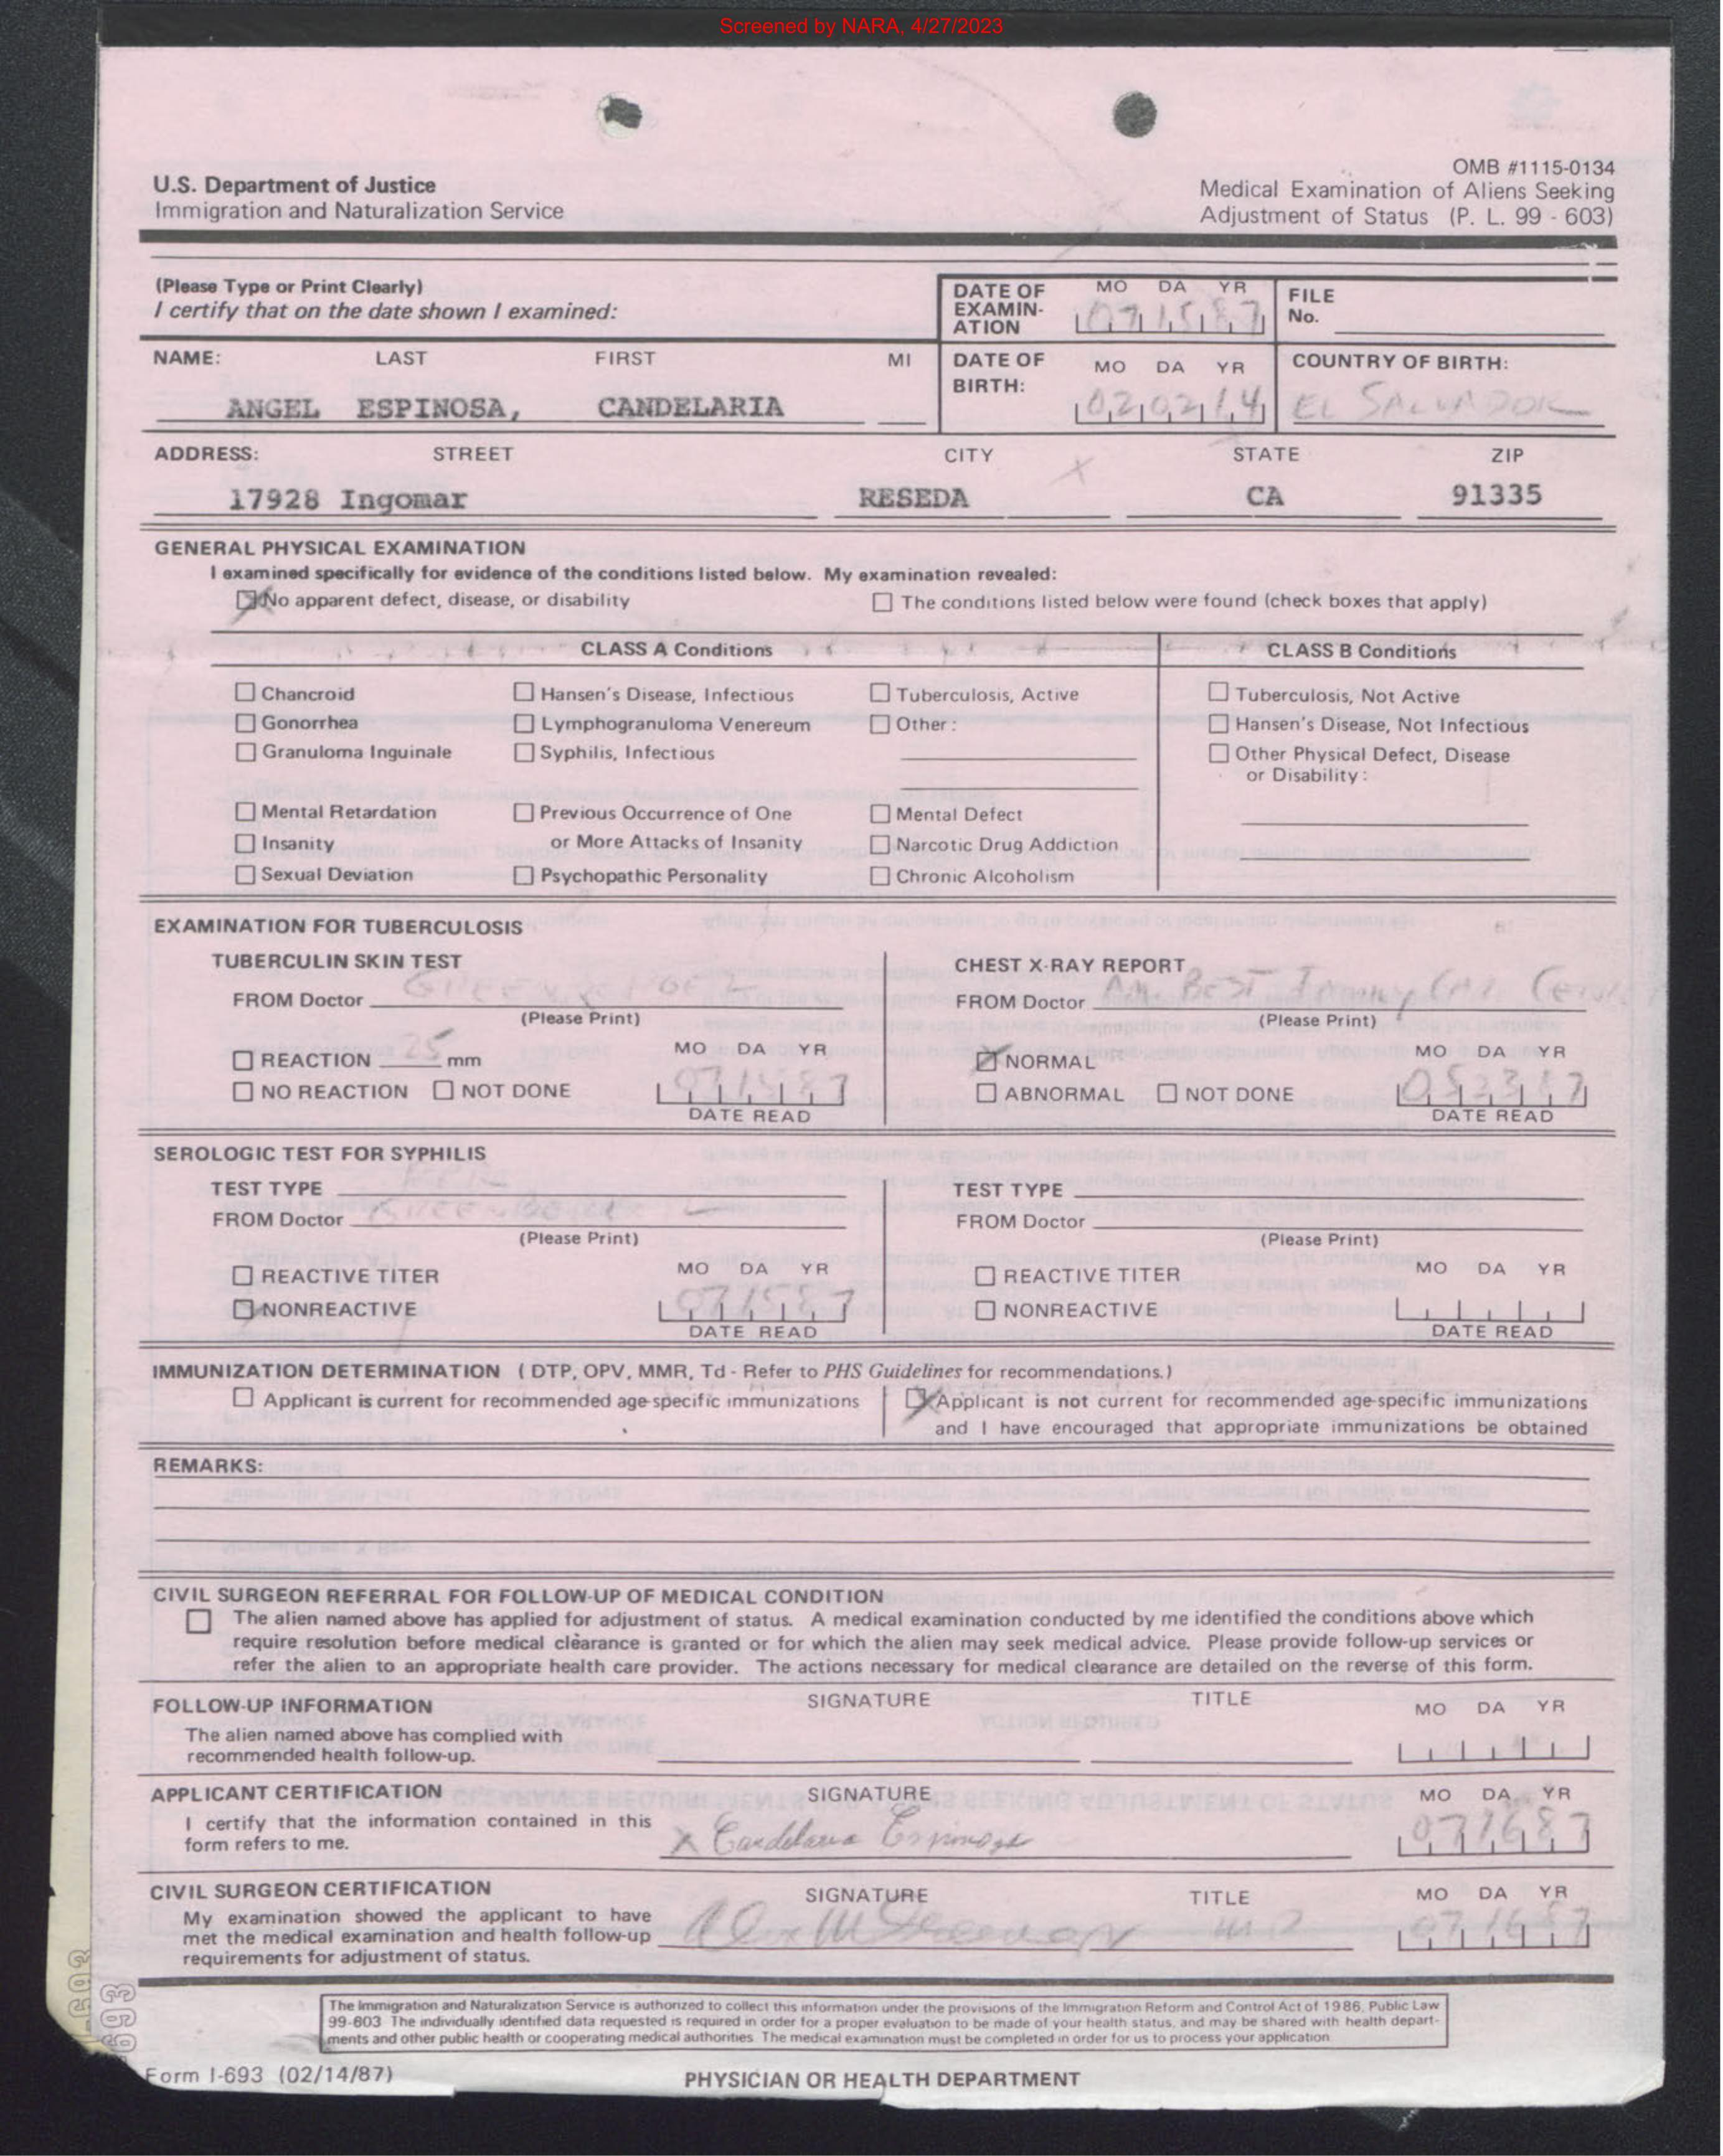 Screened by NARA, 4/27/2023
OMB #1115-0134
U.S. Department of Justice
Medical Examination of Aliens Seeking
Immigration and Naturalization Service
Adjustment of Status (P. L. 99 - 603)
(Please Type or Print Clearly)
I certify that on the date shown I examined:
DATE OF EXAMIN-ATION MO DA YR 071587
FILE No.
NAME: LAST FIRST MI
ANGEL ESPINOSA, CANDELARIA
DATE OF BIRTH: MO DA YR 020214
COUNTRY OF BIRTH:
EL SALVADOR
ADDRESS: STREET CITY STATE ZIP
17928 Ingomar RESEDA CA 91335
GENERAL PHYSICAL EXAMINATION
I examined specifically for evidence of the conditions listed below. My examination revealed:
No apparent defect, disease, or disability
The conditions listed below were found (check boxes that apply)
CLASS A Conditions CLASS B Conditions
Chancroid Hansen's Disease, Infectious Tuberculosis, Active Tuberculosis, Not Active
Gonorrhea Lymphogranuloma Venereum Other: Hansen's Disease, Not Infectious
Granuloma Inguinale Syphilis, Infectious Other Physical Defect, Disease
or Disability:
Mental Retardation Previous Occurrence of One Mental Defect
Insanity or More Attacks of Insanity Narcotic Drug Addiction
Sexual Deviation Psychopathic Personality Chronic Alcoholism
EXAMINATION FOR TUBERCULOSIS
TUBERCULIN SKIN TEST
FROM Doctor
(Please Print)
REACTION 25 mm MO DA YR
NO REACTION NOT DONE 071587
DATE READ
CHEST X-RAY REPORT
FROM Doctor Am. Best
(Please Print)
NORMAL MO DA YR
ABNORMAL NOT DONE 052387
DATE READ
SEROLOGIC TEST FOR SYPHILIS
TEST TYPE
FROM Doctor
(Please Print)
REACTIVE TITER MO DA YR
NONREACTIVE 071587
DATE READ
TEST TYPE
FROM Doctor
(Please Print)
REACTIVE TITER MO DA YR
NONREACTIVE
DATE READ
IMMUNIZATION DETERMINATION ( DTP, OPV, MMR, Td - Refer to PHS Guidelines for recommendations.)
Applicant is current for recommended age-specific immunizations
Applicant is not current for recommended age-specific immunizations
and I have encouraged that appropriate immunizations be obtained
REMARKS:
CIVIL SURGEON REFERRAL FOR FOLLOW-UP OF MEDICAL CONDITION
The alien named above has applied for adjustment of status. A medical examination conducted by me identified the conditions above which
require resolution before medical clearance is granted or for which the alien may seek medical advice. Please provide follow-up services or
refer the alien to an appropriate health care provider. The actions necessary for medical clearance are detailed on the reverse of this form.
FOLLOW-UP INFORMATION SIGNATURE TITLE MO DA YR
The alien named above has complied with
recommended health follow-up.
APPLICANT CERTIFICATION SIGNATURE MO DA YR
I certify that the information contained in this
form refers to me.
X Candelaria Espinosa 071687
CIVIL SURGEON CERTIFICATION SIGNATURE TITLE MO DA YR
My examination showed the applicant to have
met the medical examination and health follow-up
requirements for adjustment of status.
MD 071687
The Immigration and Naturalization Service is authorized to collect this information under the provisions of the Immigration Reform and Control Act of 1986, Public Law
99-603 The individually identified data requested is required in order for a proper evaluation to be made of your health status, and may be shared with health depart-
ments and other public health or cooperating medical authorities The medical examination must be completed in order for us to process your application
Form I-693 (02/14/87)
PHYSICIAN OR HEALTH DEPARTMENT